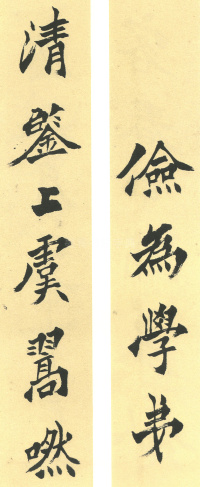 儉為學弟
清鑒上虞翯嘫